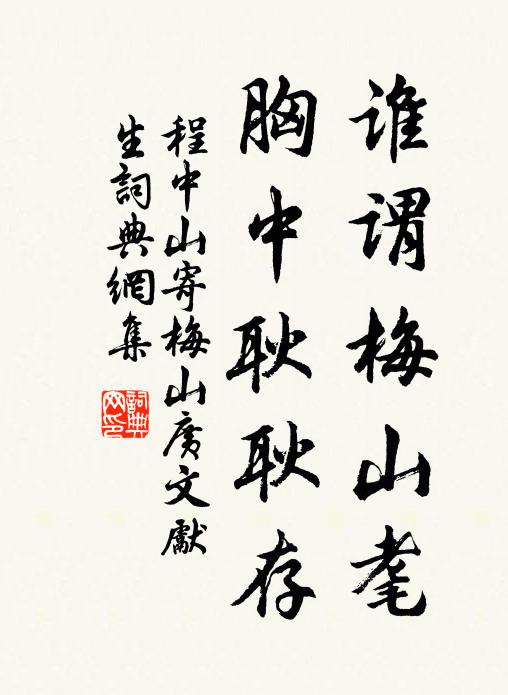 誰謂梅山耄
胸中耿耿存
程中山寄梅山廣文獻
生詞典網集
詞典网印